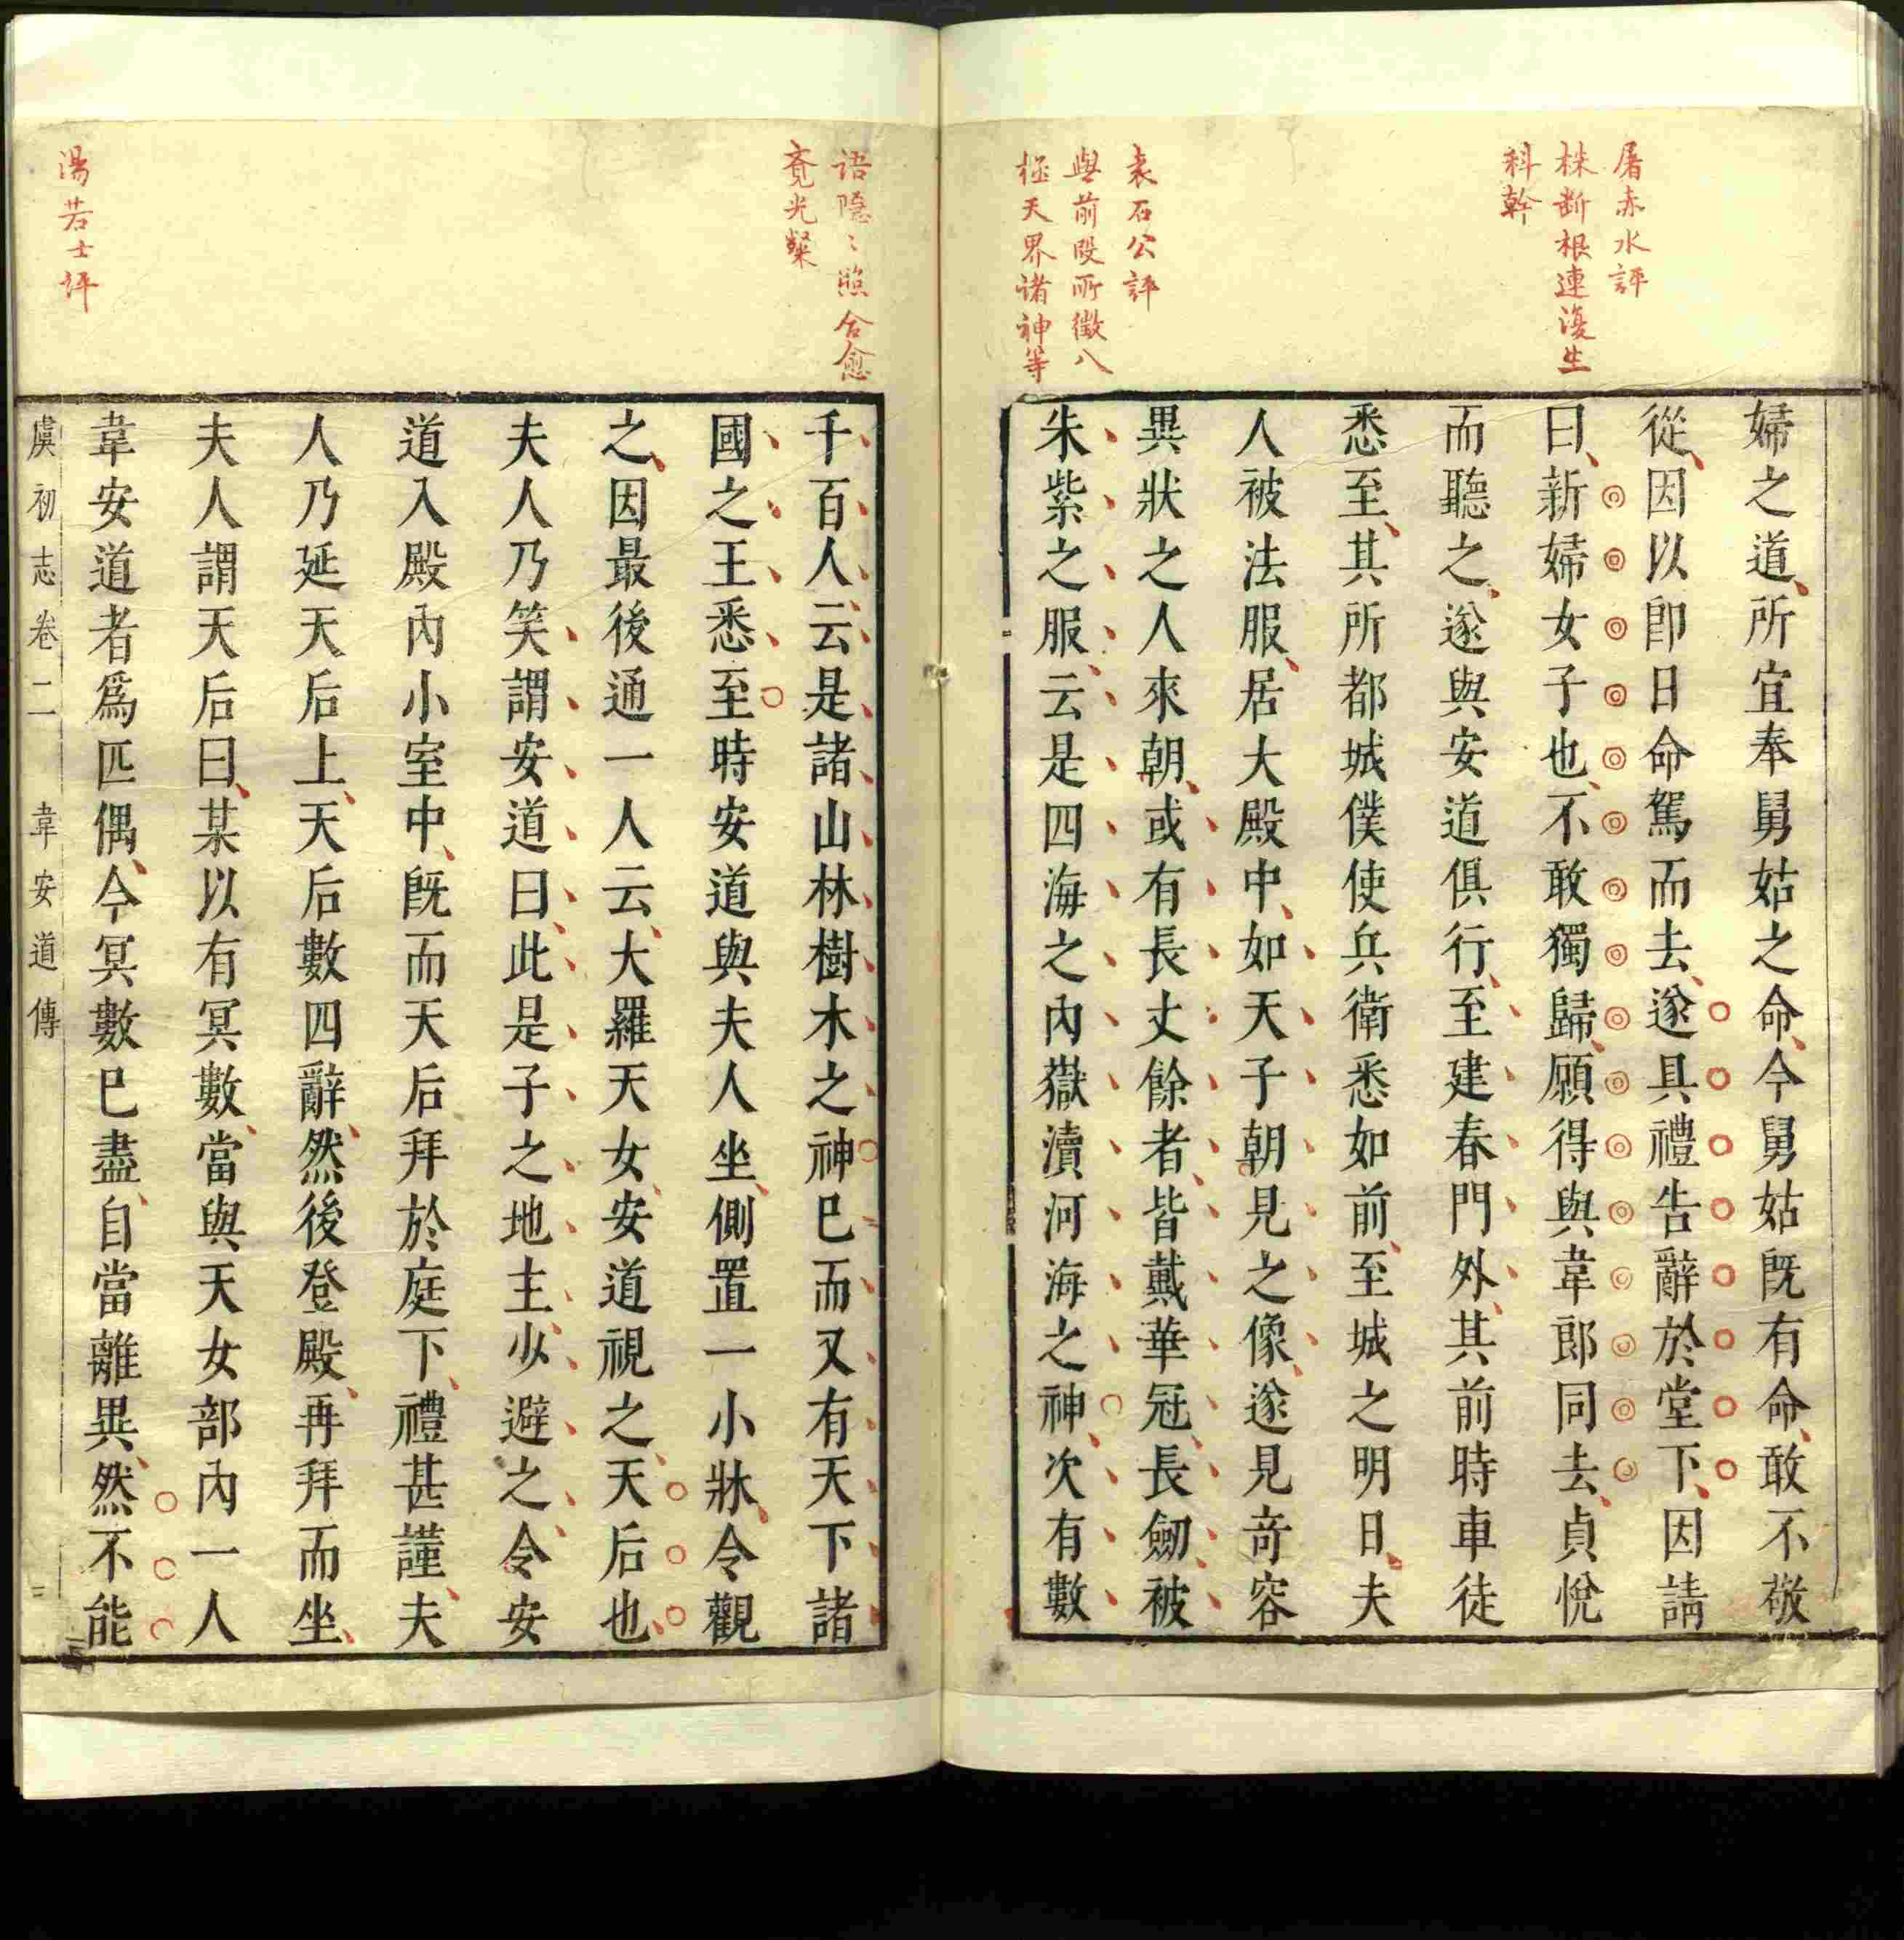 屠赤水評
株斷根連復生
科幹
袁石公評
與前段所徵八
極天界諸神等
婦之道所宜奉舅姑之命今舅姑既有命敢不敬
從因以即日命駕而去遂具禮告辭於堂下因請
曰新婦女子也不敢獨歸願得與韋郎同去貞悅
而聽之遂與安道俱行至建春門外其前時車徒
悉至其所都城僕使兵衛悉如前至城之明日夫
人被法服居大殿中如天子朝見之像遂見奇容
異狀之人來朝或有長丈餘者皆戴華冠長劒被
朱紫之服云是四海之內嶽瀆河海之神次有數
語隱〻照合愈
覺光粲
湯若士評
千百人云是諸山林樹木之神巳而又有天下諸
國之王悉至時安道與夫人坐側置一小牀令觀
之因最後通一人云大羅天女安道視之天后也
夫人乃笑謂安道曰此是子之地主少避之令安
道入殿內小室中既而天后拜於庭下禮甚謹夫
人乃延天后上天后數四辭然後登殿再拜而坐
夫人謂天后曰某以有冥數當與天女部內一人
韋安道者爲匹偶今冥數巳盡自當離異然不能
虞初志卷二 韋安道傳